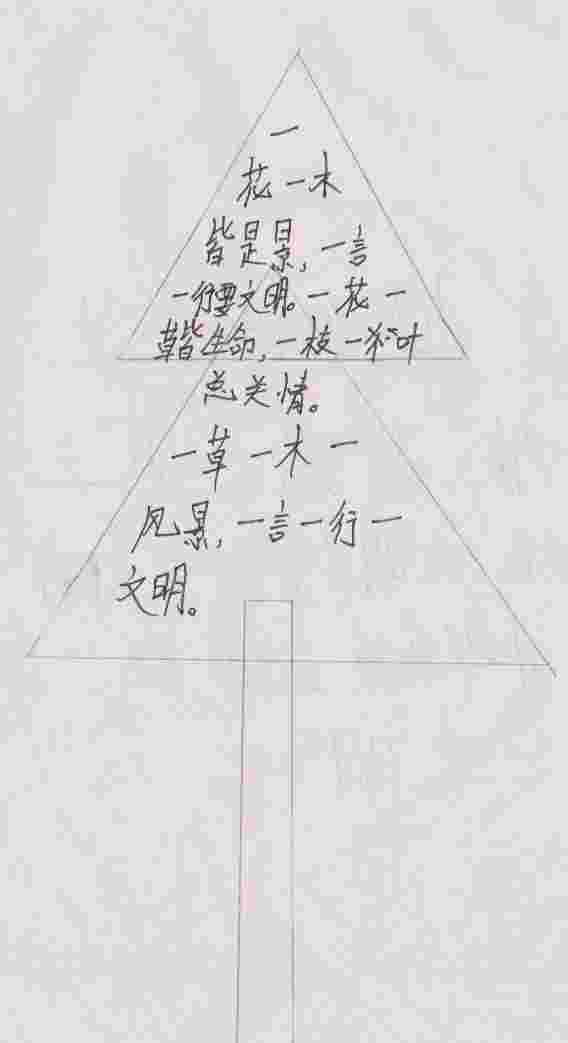 一
花一木
皆是景,一言
一行要文明。一花一
草皆生命,一枝一叶
总关情。
一草一木一
风景,一言一行一
文明。